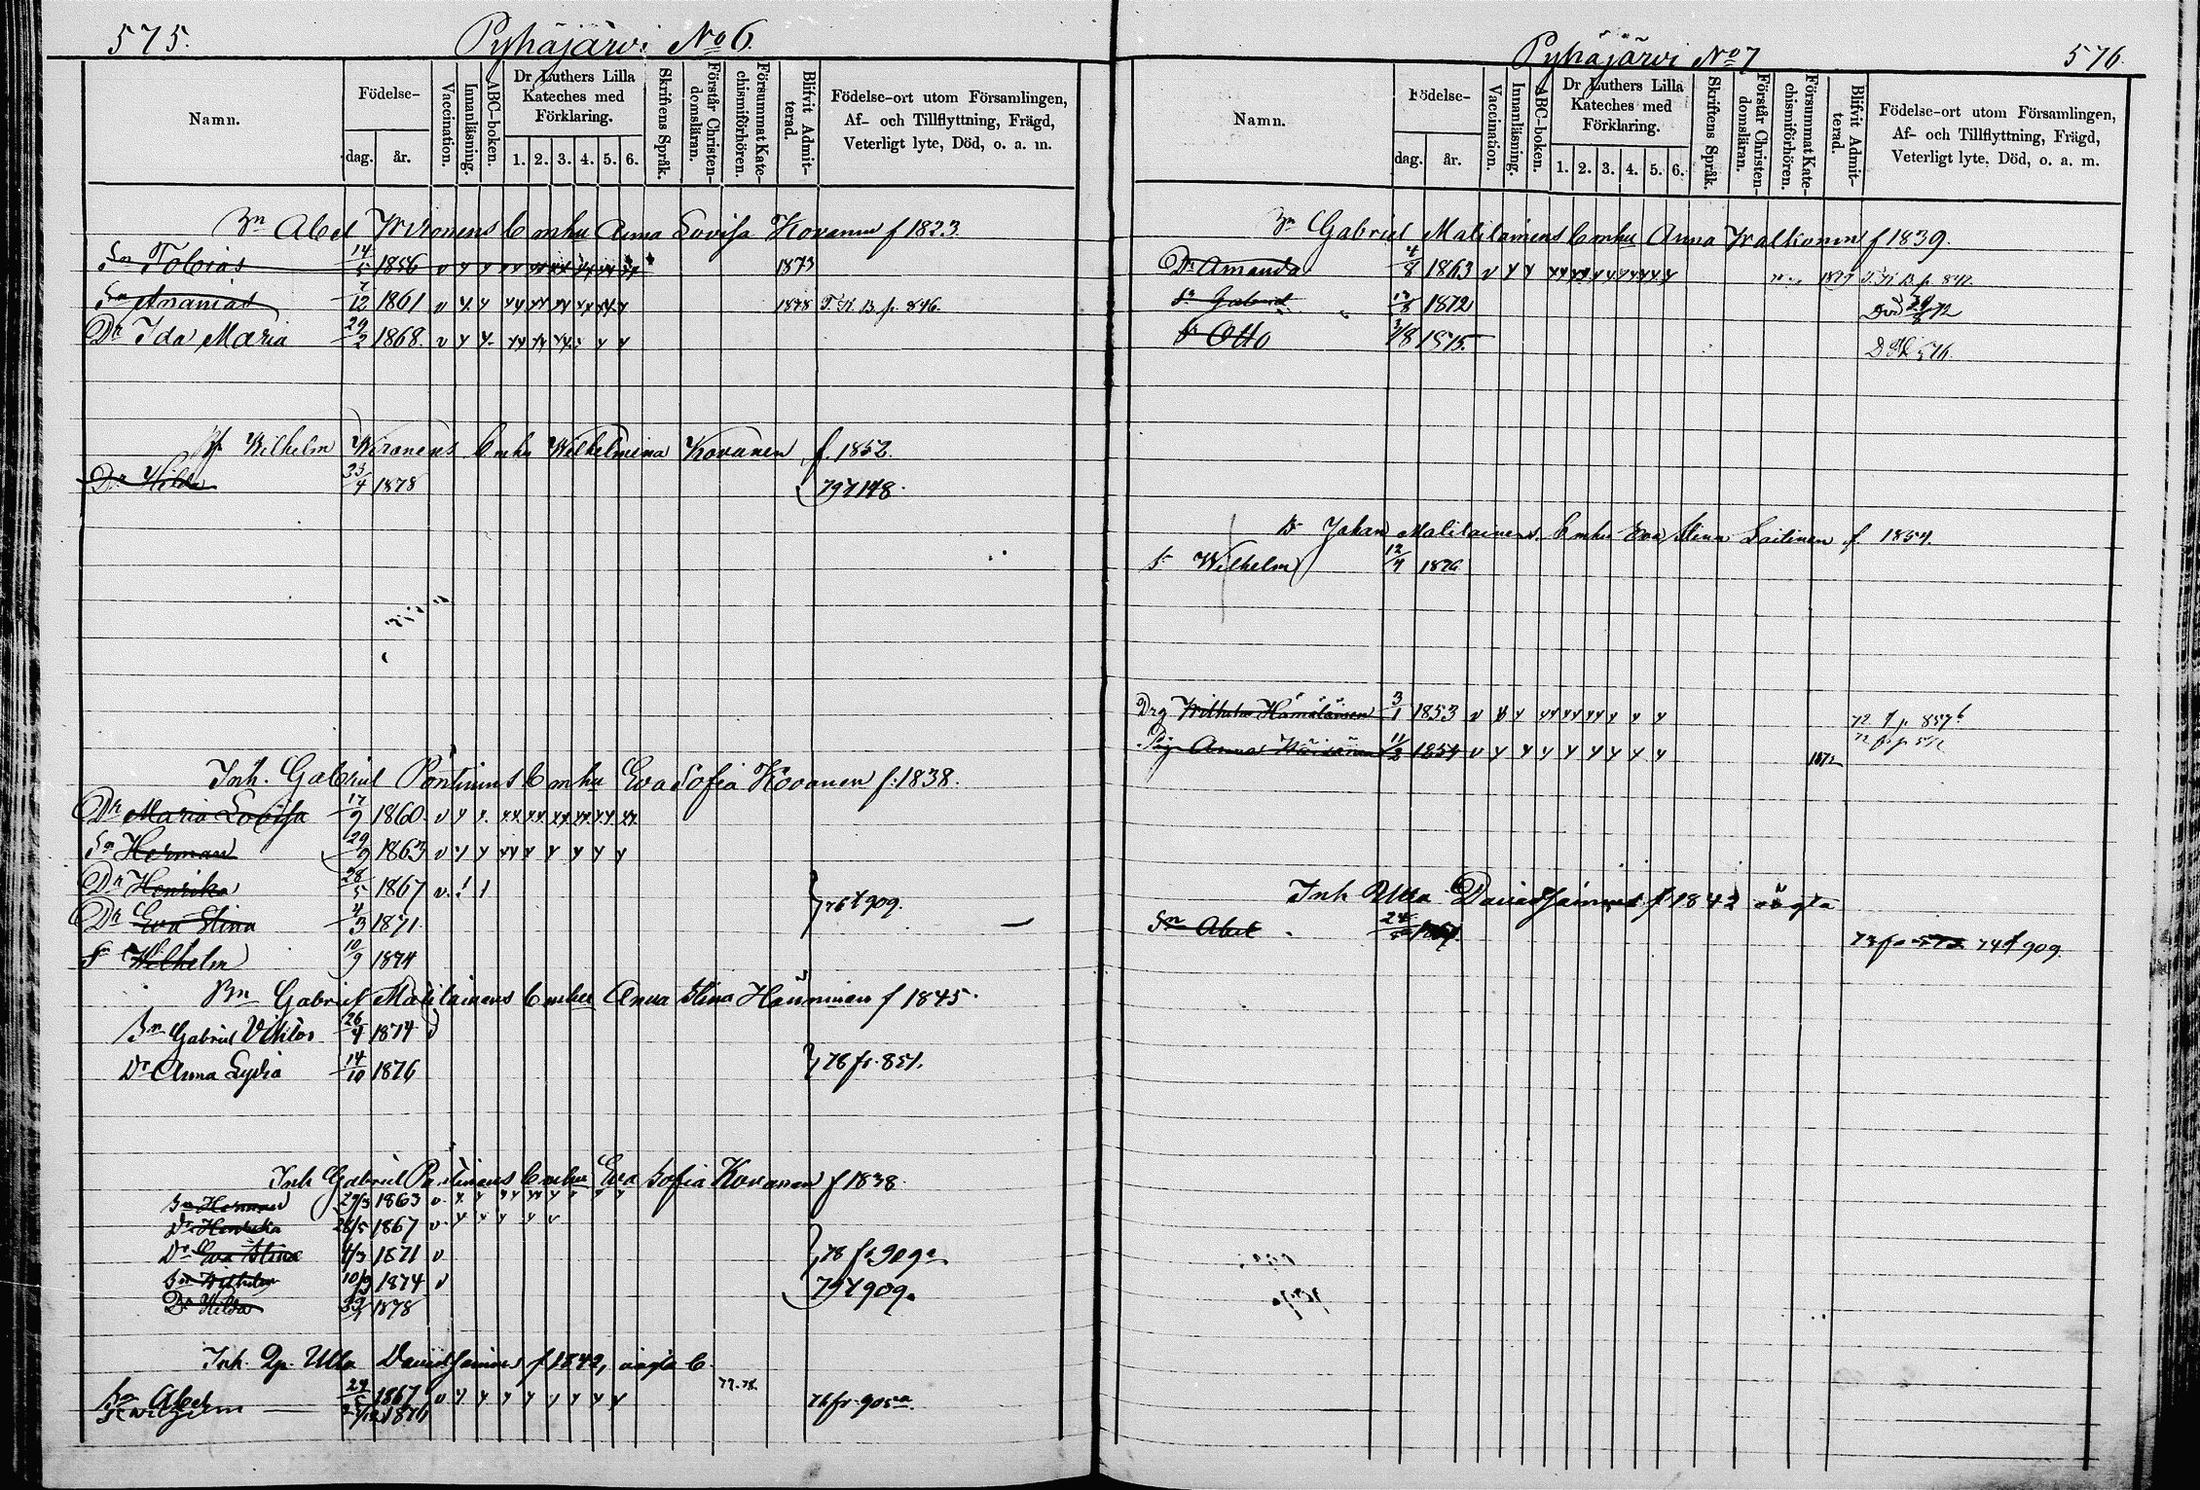 575.
Pyhäjärvi No 6.
Namn.
Födelse-
dag. år.
Vaccination.
Innanläsning.
ABC-boken.
Dr Luthers Lilla Kateches med Förklaring.
1. 2. 3. 4. 5. 6.
Skriftens Språk.
Förstår Christendomsläran.
Försummat Katechismiförhören.
Blifvit Admitterad.
Födelse-ort utom Församlingen,
Af- och Tillflyttning, Frägd,
Veterligt lyte, Död, o. a. m.
Bn Abel Wironens Enhu Anna Lovisa Kovanen f 1823.
Sn Tobias 14/5 1856 1873
Sn Ananias 7/12 1861 1878 T. K. B. p. 846.
Dr Ida Maria 29/2 1868.
Wilhelm Wironens Enhu Wilhelmina Kovanen f. 1852.
Dr Hilda 23/4 1878 79 t 148.
Inh. Gabriel Pöntinens Enhu Eva Sofia Kovanen f. 1838.
Dr Maria Lovisa 17/9 1860.
Sn Herman 29/9 1863
Dr Henrika 28/5 1867
Dr Eva Stina 4/3 1871 76 t 909.
Sn Wilhelm 10/9 1874
Bn Gabriel Malilainens Enhu Anna Stina Hänninen f 1845.
Sn Gabriel Viktor 26/4 1874
Dr Anna Lydia 14/10 1876 78 fr. 851.
Inh Gabriel Pöntinens Enhu Eva Sofia Kovanen f 1838
Sn Herman 29/3 1863
Dr Henrika 28/5 1867
Dr Eva Stina 4/3 1871 78 fr 909a
Sn Wilhelm 10/9 1874 79 t 909a
Dr Hilda 1878
Inh. Ulla Davidsainens f 1842,
Sn Abel 1867 77.78.
Sn Wilhelm 1876 76 fr. 905a.
Pyhäjärvi No 7
576.
Namn.
Födelse-
dag. år.
Vaccination.
Innanläsning.
ABC-boken.
Dr Luthers Lilla Kateches med Förklaring.
1. 2. 3. 4. 5. 6.
Skriftens Språk.
Förstår Christendomsläran.
Försummat Katechismiförhören.
Blifvit Admitterad.
Födelse-ort utom Församlingen,
Af- och Tillflyttning, Frägd,
Veterligt lyte, Död, o. a. m.
Bn Gabriel Malilainens Enhu Anna Waltonen f 1839.
Dr Amanda 4/8 1863 1879 T. K. B. p. 842.
Sn Gabriel 1872
Sn Otto 3/8 1875.
Johan Malilainens Enhu Eva Stina Laitinen f 1854.
Sn Wilhelm 12/4 1876
Drg Wilhelm Hämäläinen 3/1 1853
Pig. Anna 11/2 1854 1872
Inh Ulla Davidsainens f 1842
Sn Abel 74 t 909.